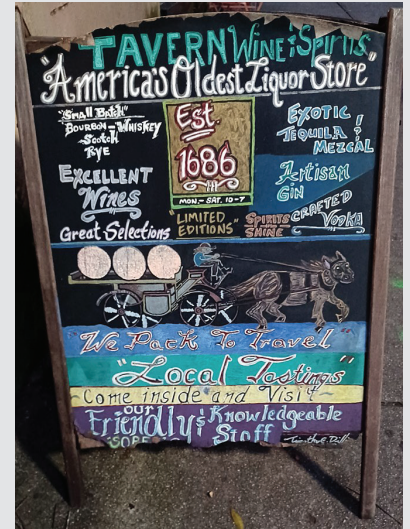 TAVERN Wine & Spirits
"America's Oldest Liquor Store"
"Small Batch"
Bourbon - Whiskey
Scotch
Rye
Excellent
Wines
Great Selections
Est.
1686
MON.- SAT. 10-7
"LIMITED
EDITIONS"
Exotic
Tequila &
Mezcal
Artisan
Gin
CRAFTED
Vodka
Spirits
SHINE
We Pack To Travel
"Local Tastings"
Come inside and Visit
our
Friendly & Knowledgeable
Staff